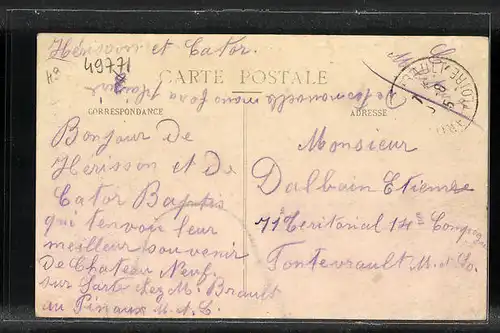 Hérisson et Cator.
49771
CARTE POSTALE
CORRESPONDANCE
ADRESSE
Bonjour de
Hérisson et de
Cator Baptis
qui tenvoi leur
meilleur souvenir
De Chateau Neuf
sur Sarte chez M. Brault
au Pinaux M. et L.
Monsieur
Dalbain Etienne
71e Teritorial 14e Compagnie
Fontevrault M. et Lo.